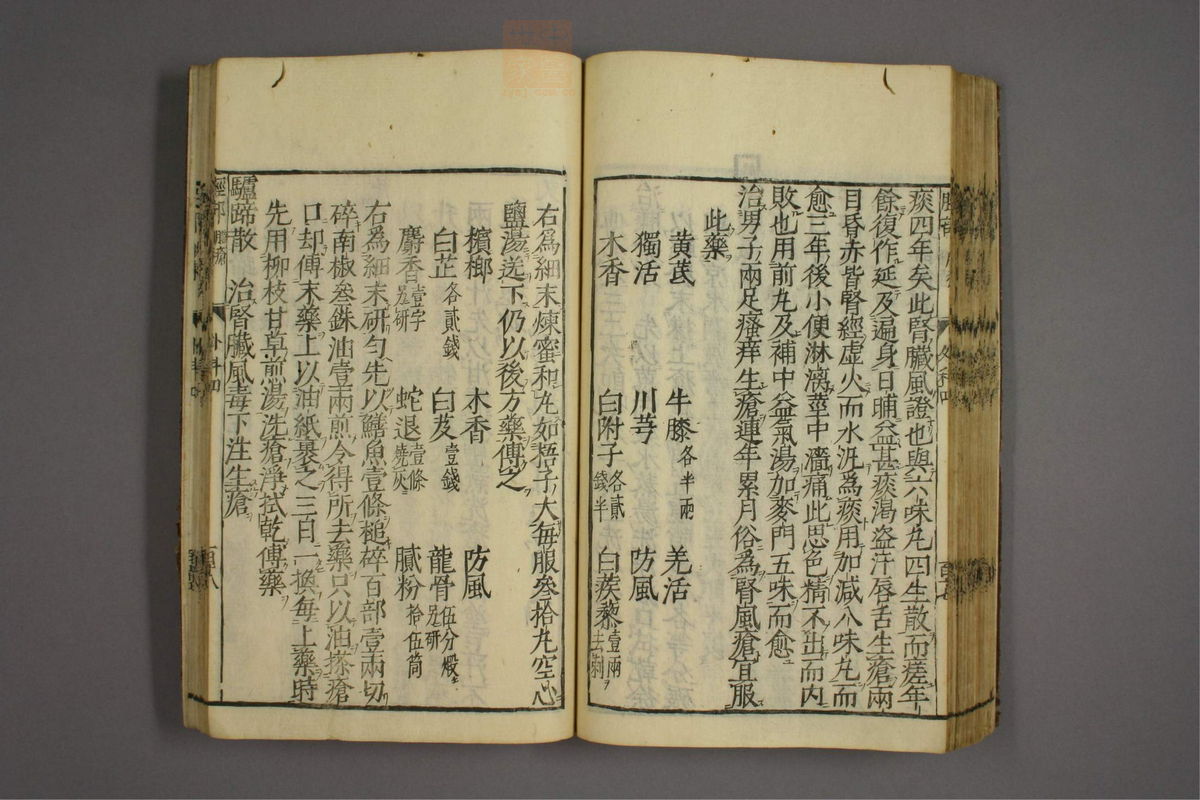 痰四年矣此腎臟風證也與六味丸四生散而瘥年
餘復作延及遍身日晡益甚痰渴盜汗唇舌生瘡兩
目昏赤皆腎經虛火而水泛為痰用加減八味丸而
愈三年後小便淋漓莖中濇痛此思色精不出而內
敗也用前丸及補中益氣湯加麥門五味而愈
治男子兩足瘙痒生瘡連年累月俗為腎風瘡宜服
此藥
黃芪 牛膝各半兩 羌活
獨活 川芎 防風
木香 白附子各貳錢半 白蒺藜壹兩去刺
右為細末煉蜜和丸如梧子大每服參拾丸空心
鹽湯送下仍以後方藥傅之
檳榔 木香 防風
白芷各貳錢 白芨壹錢 龍骨伍分煅另研
麝香壹字另研 蛇退壹條燒灰 膩粉拾伍筒
右為細末研勻先以鱔魚壹條槌碎百部壹兩切
碎南椒叁銖油壹兩煎令得所去藥只以油搽瘡
口却傅末藥上以油紙裹之三日一換每上藥時
先用柳枝甘草煎湯洗瘡淨拭乾傅藥
驢蹄散 治腎臟風毒下注生瘡
外科四
百八